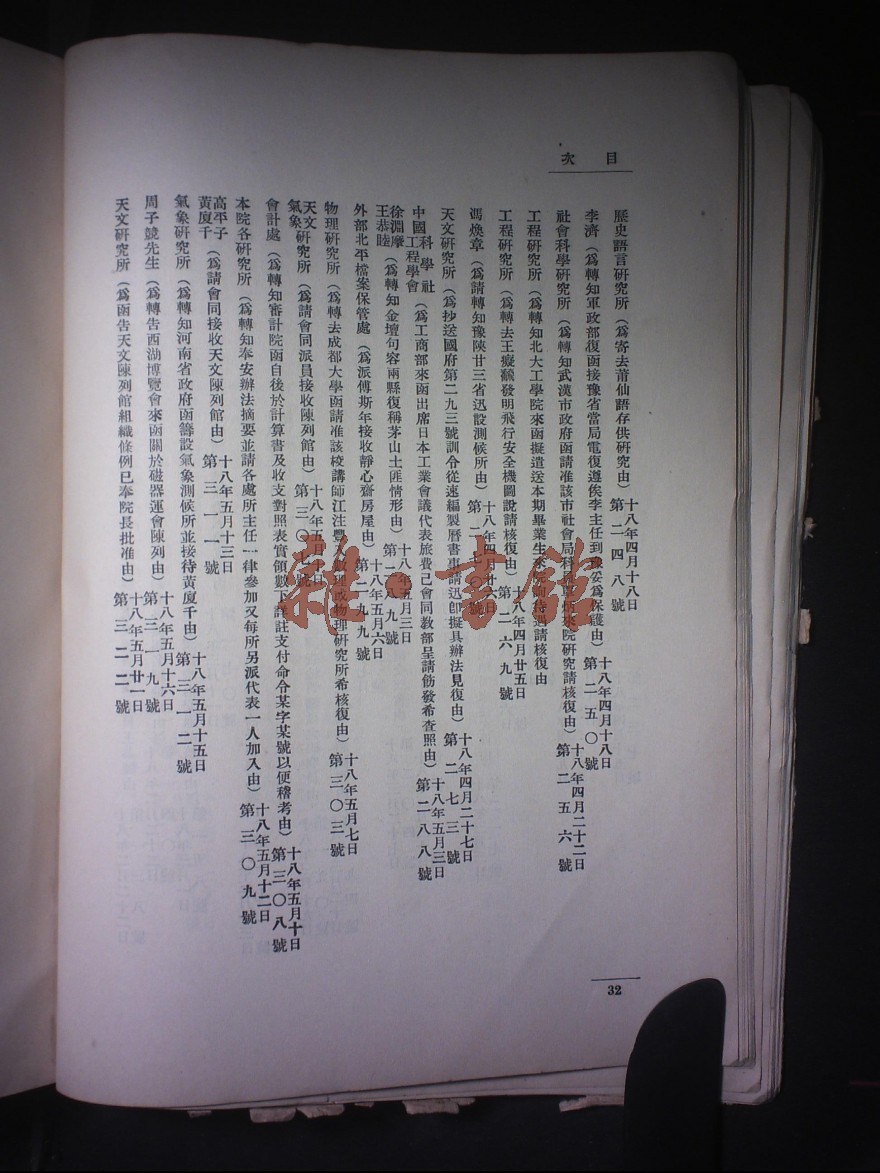 目次
歷史語言研究所（爲寄去莆仙語存供研究由）十八年四月十八日第二四八號
李濟（爲轉知軍政部復函接豫省當局電復遵俟李主任到豫妥爲保護由）十八年四月十八日第二五〇號
社會科學研究所（爲轉知武漢市政府函請准該市社會局科來院研究請核復由）十八年四月二十二日第二五六號
工程研究所（爲轉知北大工學院來函擬遣送本期畢業生來院待遇請核復由
工程研究所（爲轉去王癡顧發明飛行安全機圖說請核復由）十八年四月廿五日第二六九號
馮煥章（爲請轉知豫陝廿三省迅設測候所由）十八年四月廿六日第二七號
天文研究所（爲抄送國府第二九三號訓令從速編製曆書事請迅卽擬具辦法見復由）十八年四月二十七日第二七三號
中國科學社工程學會（爲工商部來函出席日本工業會議代表旅費己會同教部呈請飭發希查照由）十八年五月三日第二八八號
徐淵摩王恭睦（爲轉知金壇句容兩縣復稱茅山土匪情形由）十八年五月三日第二八九號
外部北平檔案保管處（爲派傅斯年接收靜心齋房屋由）十八年五月六日第二九九號
物理研究所（爲轉去成都大學函請准該校講師江注豐入數理或物理研究所希核復由）十八年五月七日第三〇三號
天文氣象研究所（爲請會同派員接收陳列館由）十八年五月十日第三〇七號
會計處（爲轉知審計院函自後於計算書及收支對照表實領數下詳註支付命令某字某號以便稽考由）十八年五月十日第三〇八號
本院各研究所（爲轉知奉安辦法摘要並請各處所主任一律參加又每所另派代表一人加入由）十八年五月十二日第三〇九號
高平子黃廈千（爲請會同接收天文陳列館由）十八年五月十三日第三一一號
氣象研究所（爲轉知河南省政府函籌設氣象測候所並接待黃廈千由）十八年五月十五日第三一二號
周子競先生（爲轉告西湖博覽會來函關於磁器運會陳列由）十八年五月十六日第三一九號
天文研究所（爲函告天文陳列館組織條例已奉院長批准由）十八年五月廿一日第三二二號
32
雜·書館